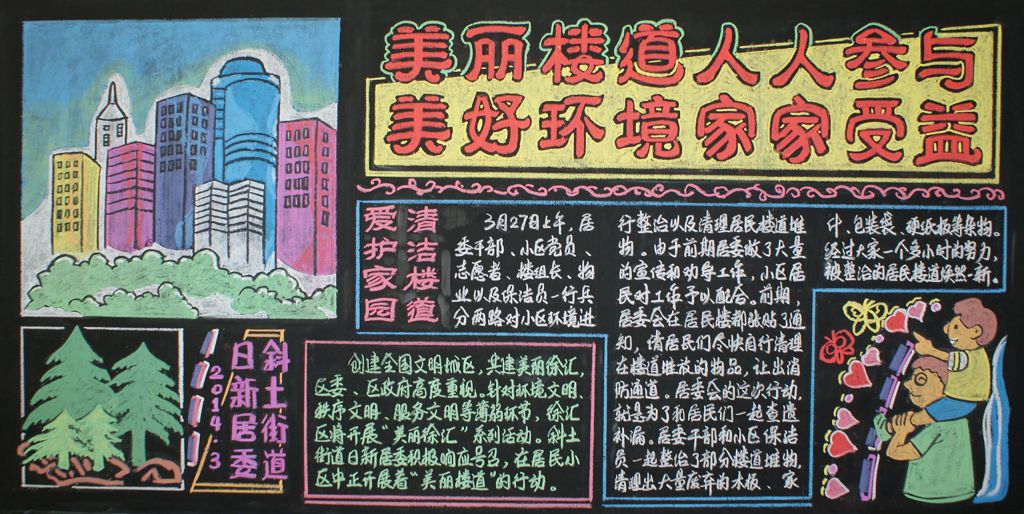 美丽楼道人人参与
美好环境家家受益
清洁楼道
爱护家园
3月27日上午，居
委干部、小区党员、
志愿者、楼组长、物
业以及保洁员一行兵
分两路对小区环境进
行整治以及清理居民楼道堆
物。由于前期居委做了大量
的宣传和劝导工作，小区居
民对工作予以配合。前期，
居委会在居民楼都张贴了通
知，请居民们尽快自行清理
在楼道堆放的物品，让出消
防通道。居委会的这次行动，
就是为了和居民们一起查遗
补漏。居委干部和小区保洁
员一起整治了部分楼道堆物，
清理出大量废弃的木板、家
什、包装袋、硬纸板等杂物。
经过大家一个多小时的努力，
被整治的居民楼道焕然一新。
创建全国文明城区，共建美丽徐汇，
区委、区政府高度重视。针对环境文明、
秩序文明、服务文明等薄弱环节，徐汇
区将开展“美丽徐汇”系列活动。斜土
街道日新居委积极响应号召，在居民小
区中正开展着“美丽楼道”的行动。
斜土街道
日新居委
2014.3